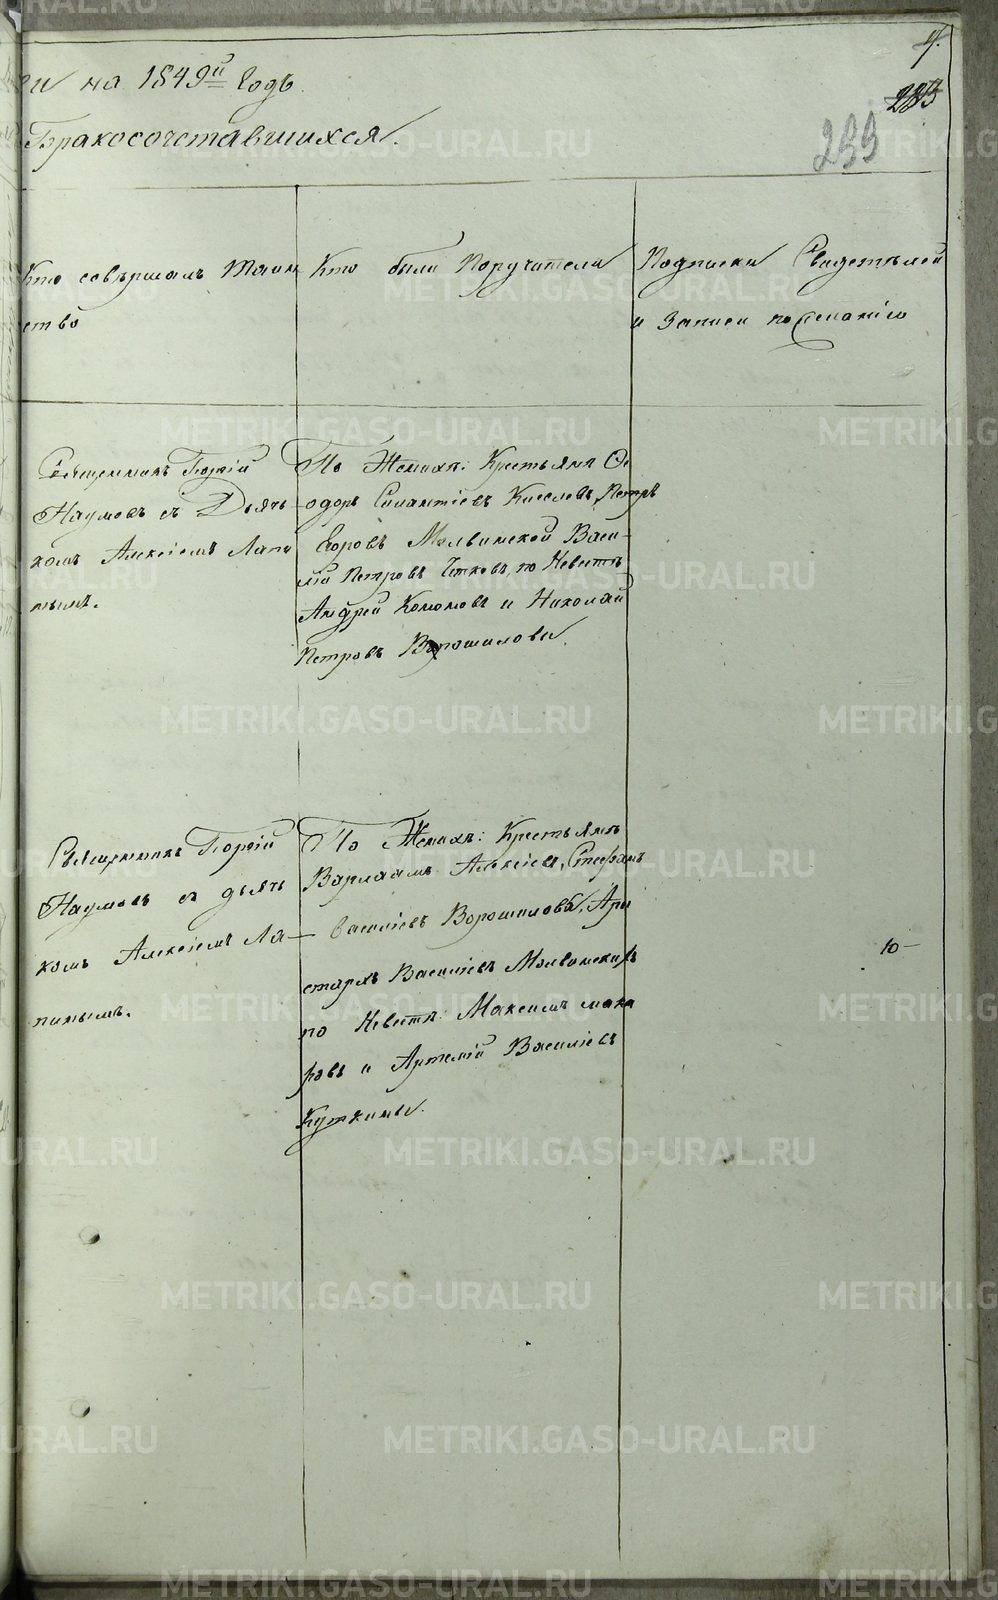 METRIKI.GASO-URAL.RU
4.
ги на 1849й Годъ.
283
Бракосочетавшихся.
233
Кто совѣршалъ Таин
ство
Кто были Поручители
Подписки Свидетелей
и Записи по желанію
Священникъ Георгій
Наумовъ съ Дьяч
комъ Алексіемъ Лапи
нымъ.
По Женихѣ: Крестьяне Ѳе
одоръ Силантіевъ Киселевъ, Петръ
Егоровъ Мальвинской Васи-
лій Петровъ, по Невестѣ
Андрей Кононовъ и Николай
Петровъ Ворошиловы.
Священникъ Георгій
Наумовъ съ дьяч
комъ Алексіемъ Ла-
пинымъ.
По Женихѣ: Крестьяне
Варлаамъ Алексіевъ, Стефанъ
Василіевъ Ворошиловы, Ари
стархъ Василіевъ Мальвинскихъ
по Невестѣ: Максимъ мака
ровъ и Артемій Василіевъ
Куткины.
10-